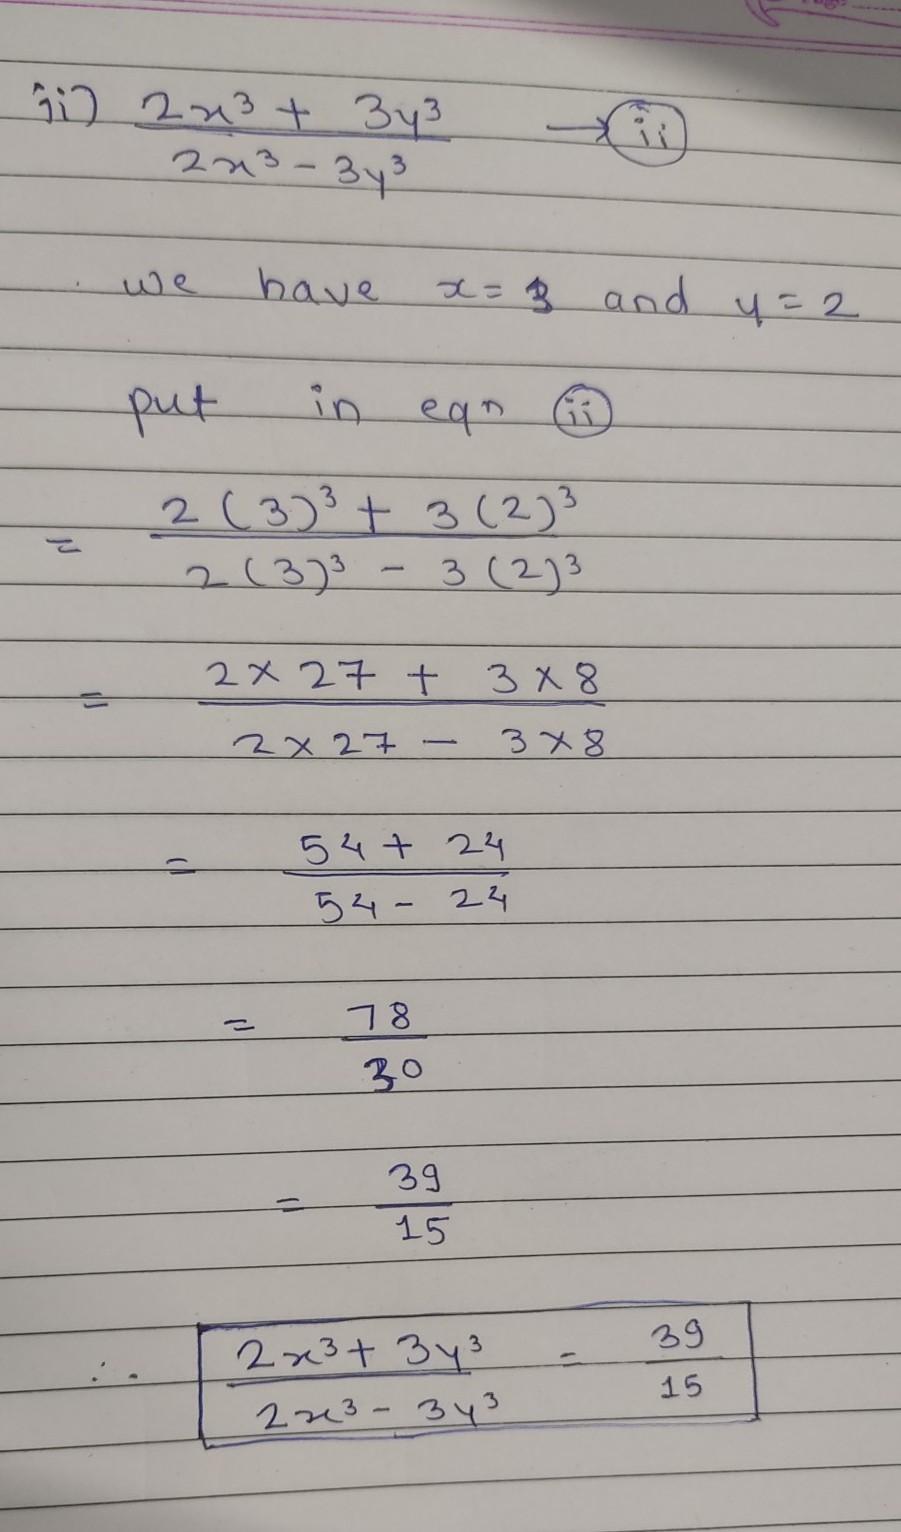 ii) 2x³ + 3y³ → ii
2x³ - 3y³
we have x = 3 and y = 2
put in eqn ii
= 2 (3)³ + 3 (2)³
2 (3)³ - 3 (2)³
= 2 × 27 + 3 × 8
2 × 27 - 3 × 8
= 54 + 24
54 - 24
= 78
30
= 39
15
∴ 2x³ + 3y³ = 39
2x³ - 3y³ 15